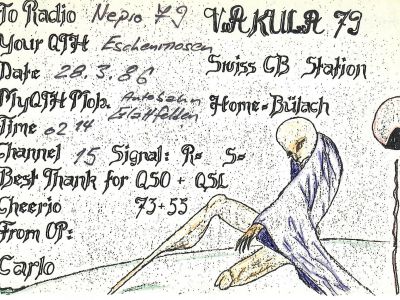 To Radio Nepro 79
VAKULA 79
Your QTH Eschenmosen
Swiss CB Station
Date 28.3.86
MyQTH Mob. Autobahn Glattfelden
Home=Bülach
Time 02 14
Channel 15 Signal: R= S=
Best Thank for QSO + QSL
Cheerio 73+55
From OP:
Carlo